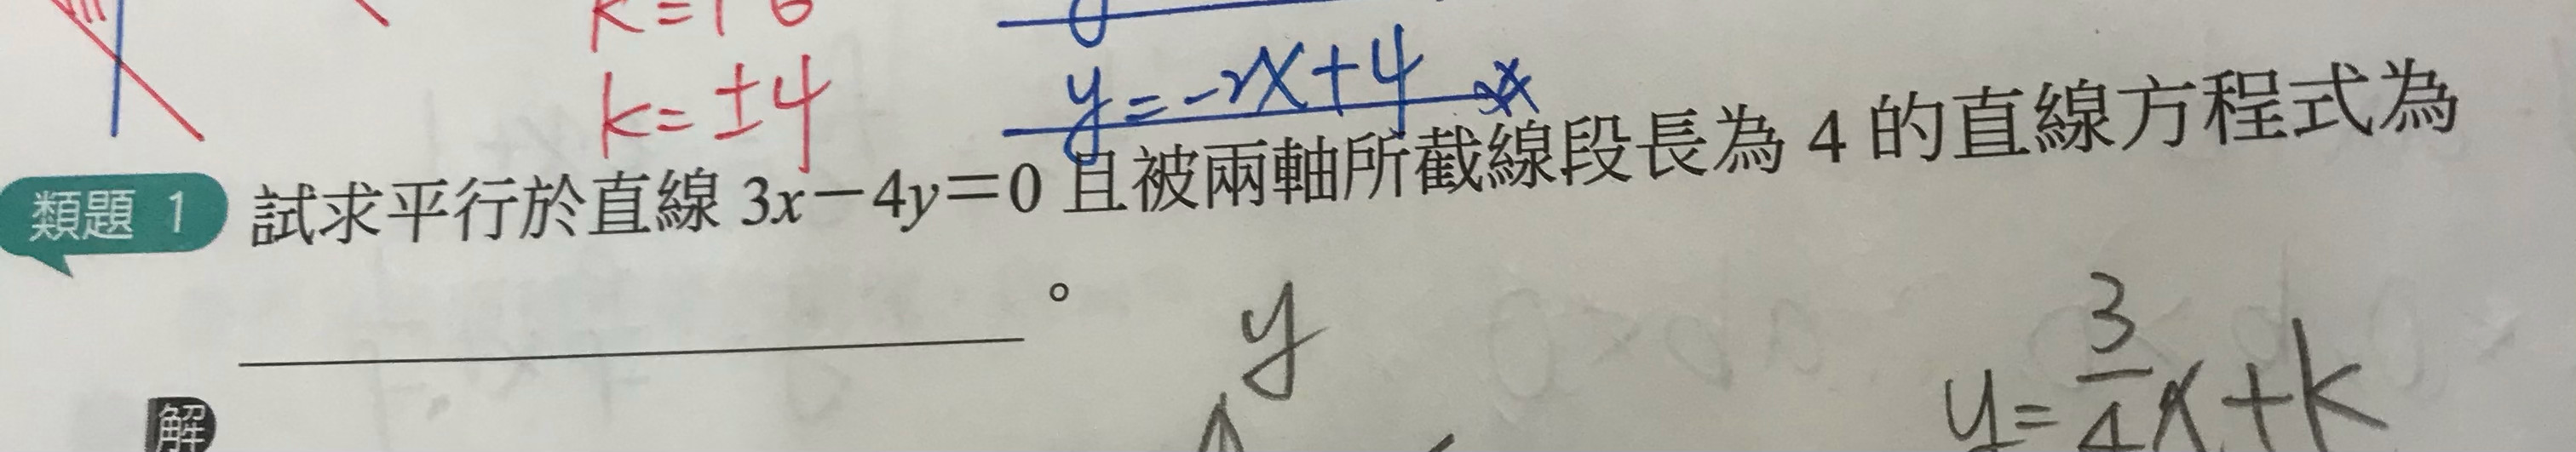 k=±4
y=-2x+4
類題 1 試求平行於直線 3x-4y=0 且被兩軸所截線段長為 4 的直線方程式為
。
y
y=3/4x+k
解